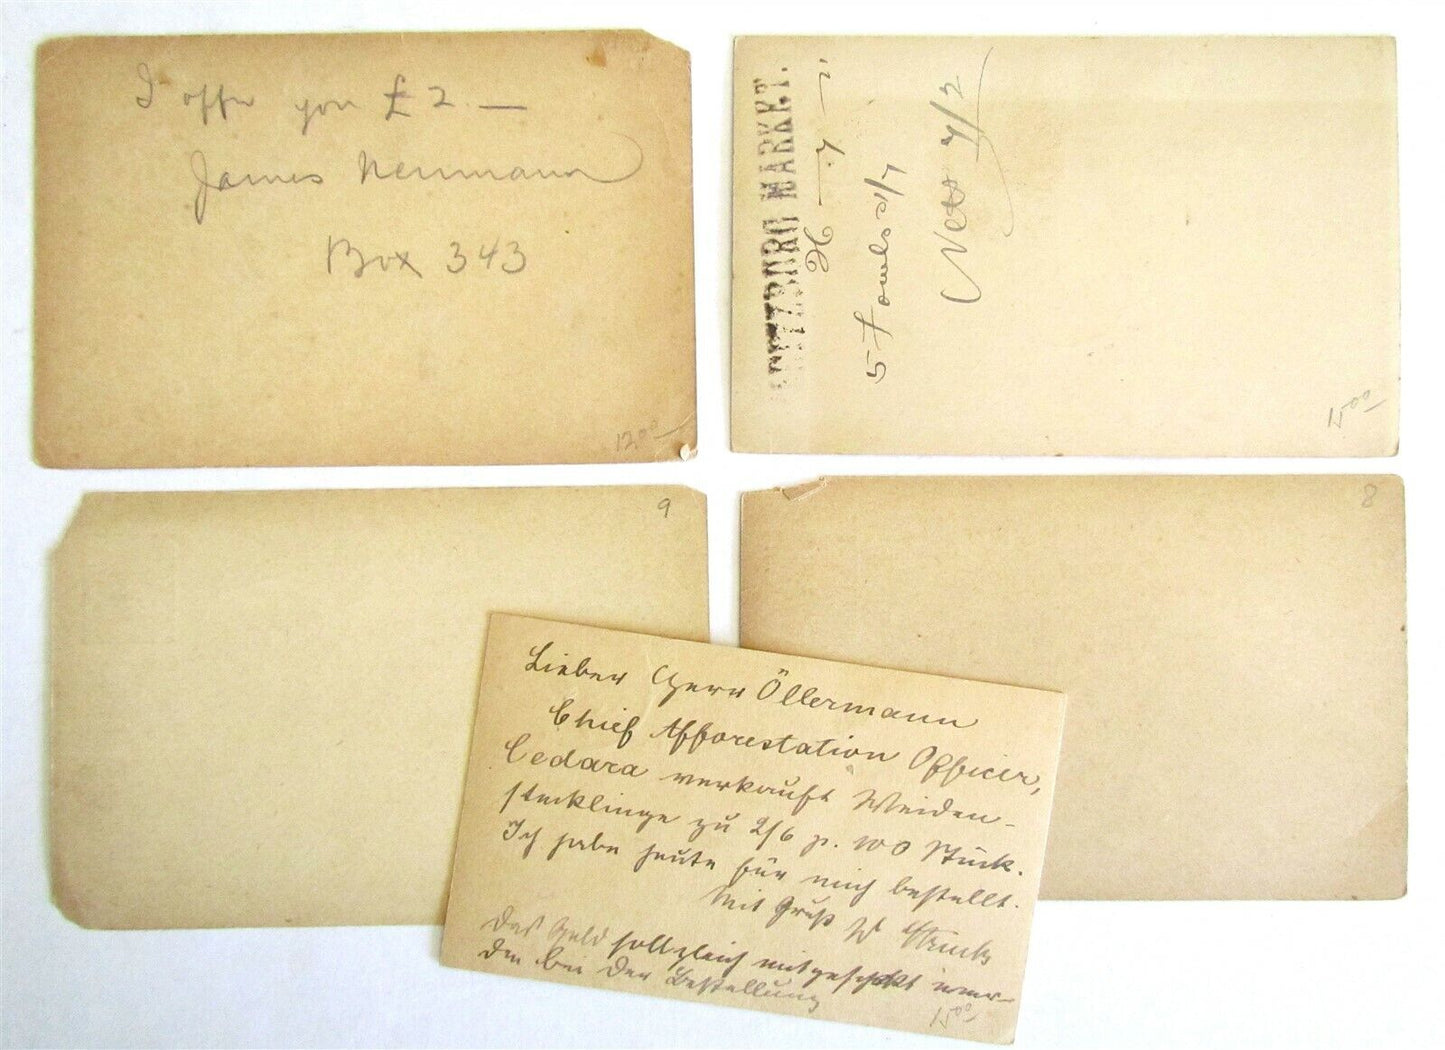 I offer you £2.—
James Herrmann
Box 343
12.00
RITZBURG MARKET.
5 Fowls
Nett 7/2
9
8
Lieber Herr Öllermann
Chief Afforestation Officer,
Cedara verkauft Weiden-
stecklinge zu 2/6 p. 100 Stück.
Ich habe heute für mich bestellt.
Mit Gruß W
Das Geld soll gleich mitgeschickt wer-
den bei der Bestellung
15.00